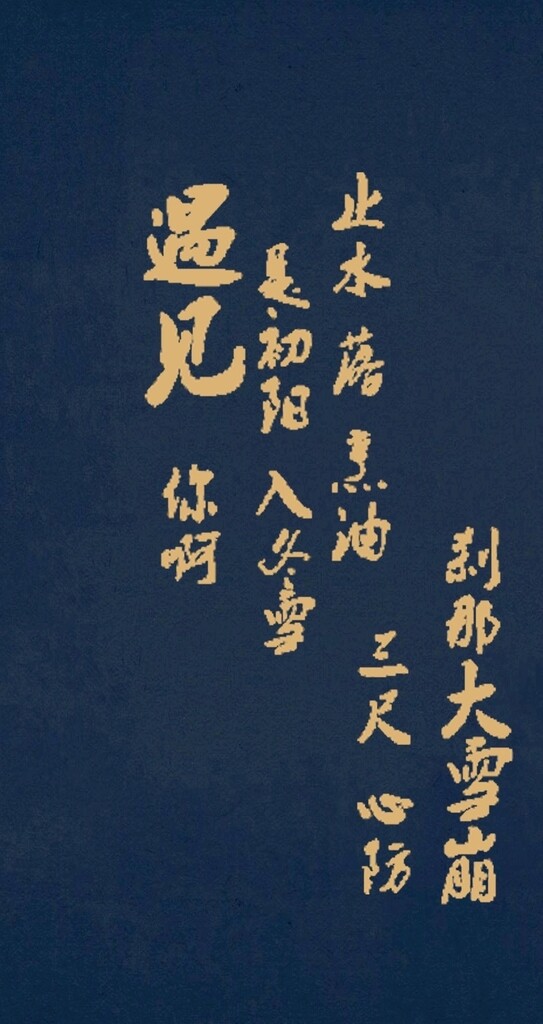 遇见 你啊
是初阳 入冬雪
止水 落 烹油
三尺 心防
刹那大雪崩